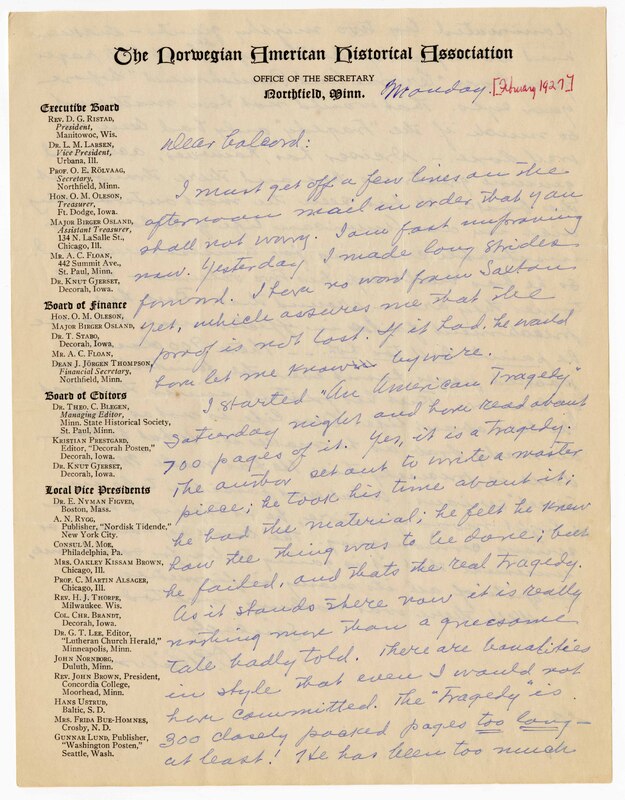 The Norwegian American Historical Association
OFFICE OF THE SECRETARY
Northfield, Minn.
Monday. [February 1927]
Executive Board
REV. D. G. RISTAD,
President,
Manitowoc, Wis.
DR. L. M. LARSEN,
Vice President,
Urbana, Ill.
PROF. O. E. RÖLVAAG,
Secretary,
Northfield, Minn.
HON. O. M. OLESON,
Treasurer,
Ft. Dodge, Iowa.
MAJOR BIRGER OSLAND,
Assistant Treasurer,
134 N. LaSalle St.,
Chicago, Ill.
MR. A. C. FLOAN,
442 Summit Ave.,
St. Paul, Minn.
DR. KNUT GJERSET,
Decorah, Iowa.
Board of Finance
HON. O. M. OLESON,
MAJOR BIRGER OSLAND,
DR. T. STABO,
Decorah, Iowa.
MR. A. C. FLOAN,
DEAN J. JÖRGEN THOMPSON,
Financial Secretary,
Northfield, Minn.
Board of Editors
DR. THEO. C. BLEGEN,
Managing Editor,
Minn. State Historical Society,
St. Paul, Minn.
KRISTIAN PRESTGARD,
Editor, "Decorah Posten,"
Decorah, Iowa.
DR. KNUT GJERSET,
Decorah, Iowa.
Local Vice Presidents
DR. E. NYMAN FIGVED,
Boston, Mass.
A. N. RYGG,
Publisher, "Nordisk Tidende,"
New York City.
CONSUL M. MOE,
Philadelphia, Pa.
MRS. OAKLEY KISSAM BROWN,
Chicago, Ill.
PROF. C. MARTIN ALSAGER,
Chicago, Ill.
REV. H. J. THORPE,
Milwaukee. Wis.
COL. CHR. BRANDT,
Decorah, Iowa.
DR. G. T. LEE, Editor,
"Lutheran Church Herald,"
Minneapolis, Minn.
JOHN NORNBORG,
Duluth, Minn.
REV. JOHN BROWN, President,
Concordia College,
Moorhead, Minn.
HANS USTRUD,
Baltic, S. D.
MRS. FRIDA BUE-HOMNES,
Crosby, N. D.
GUNNAR LUND, Publisher,
"Washington Posten,"
Seattle, Wash.
Dear Colcord:
I must get off a few lines on the
afternoon mail in order that you
shall not worry. I am fast improving
now. Yesterday I made long strides
forward. I have no word from Saxton
yet, which assures me that the
proof is not lost. If it had, he would
have let me know by wire.
I started "An American Tragedy"
Saturday night and have read about
700 pages of it. Yes, it is a tragedy.
The author set out to write a master
piece; he took his time about it;
he had the material; he felt he knew
how the thing was to be done; but
he failed, and thats the real tragedy.
As it stands there now it is really
nothing more than a gruesome
tale badly told. There are banalities
in style that even I would not
have committed. The "Tragedy" is
300 closely packed pages too long—
at least! He has been too much